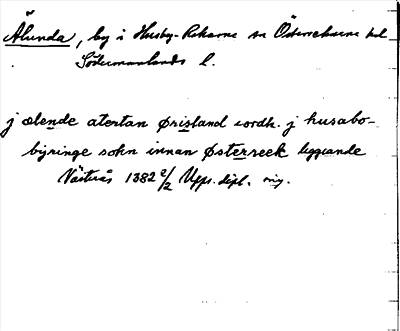 Ålunda, by i Husby-Rekarne sn Österrekarne hd
Södermanlands l.
j ælende atertan ørisland iordh. j husabo-
byringe sokn innan østerreek liggiande
Västerås 1382 2/2 Upps. dipl. orig.